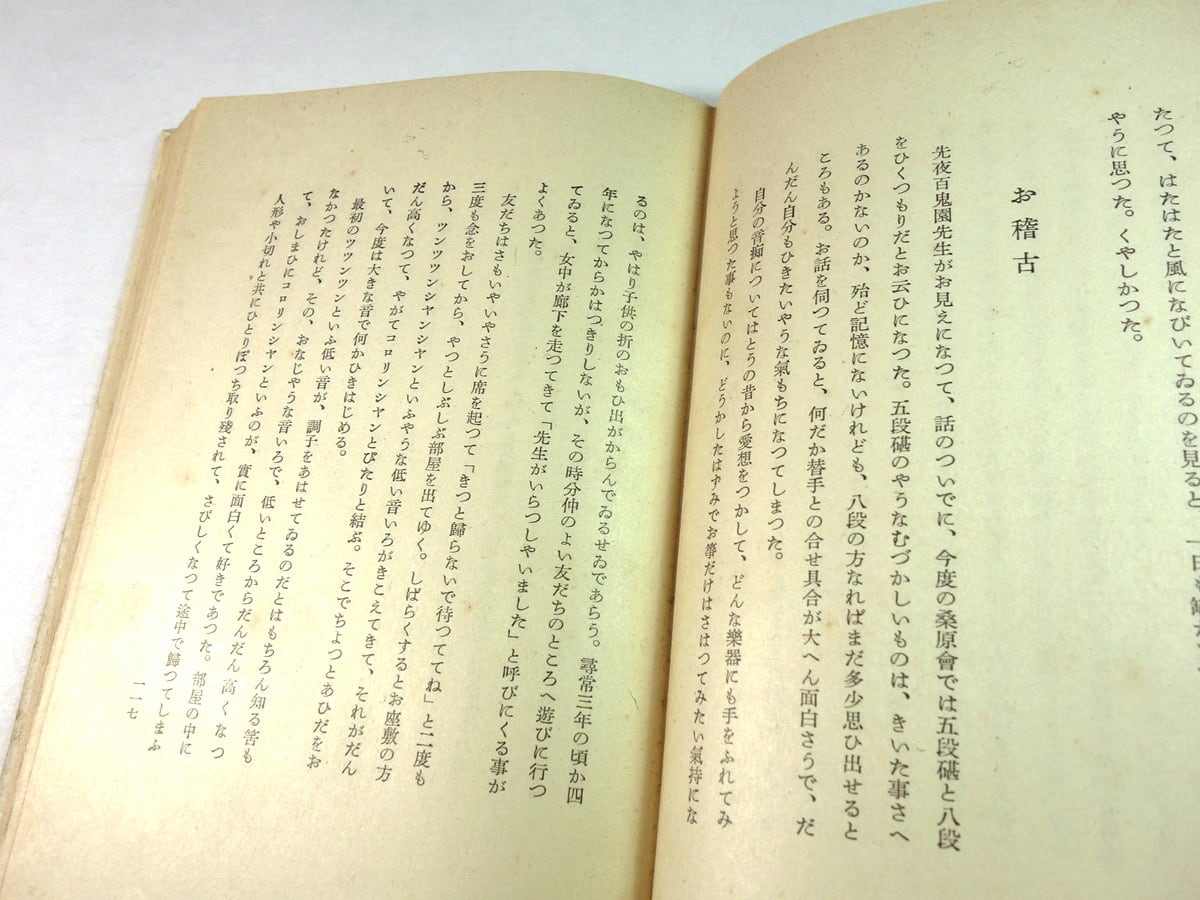 たつて、はたはたと風になびいてゐるのを見ると、一日も
やうに思つた。くやしかつた。
お稽古
先夜百鬼園先生がお見えになつて、話のついでに、今度の桑原會では五段砧と八段
をひくつもりだとお云ひになつた。五段砧のやうなむづかしいものは、きいた事さへ
あるのかないのか、殆ど記憶にないけれども、八段の方なればまだ多少思ひ出せると
ころもある。お話を伺つてゐると、何だか替手との合せ具合が大へん面白さうで、だ
んだん自分もひきたいやうな氣もちになつてしまつた。
自分の音痴についてはとうの昔から愛想をつかして、どんな樂器にも手をふれてみ
ようと思つた事もないのに、どうかしたはずみでお箏だけはさはつてみたい氣持にな
るのは、やはり子供の折のおもひ出がからんでゐるせゐであらう。尋常三年の頃か四
年になつてからかはつきりしないが、その時分仲のよい友だちのところへ遊びに行つ
てゐると、女中が廊下を走つてきて「先生がいらつしやいました」と呼びにくる事が
よくあつた。
友だちはさもいやいやさうに席を起つて「きつと歸らないで待つててね」と二度も
三度も念をおしてから、やつとしぶしぶ部屋を出てゆく。しばらくするとお座敷の方
から、ツンツツンシヤンシヤンといふやうな低い音いろがきこえてきて、それがだん
だん高くなつて、やがてコロリンシヤンとぴたりと結ぶ。そこでちよつとあひだをお
いて、今度は大きな音で何かひきはじめる。
最初のツツンツンといふ低い音が、調子をあはせてゐるのだとはもちろん知る筈も
なかつたけれど、その、おなじやうな音いろで、低いところからだんだん高くなつ
て、おしまひにコロリンシヤンといふのが、實に面白くて好きであつた。部屋の中に
人形や小切れと共にひとりぼつち取り殘されて、さびしくなつて途中で歸つてしまふ
一一七